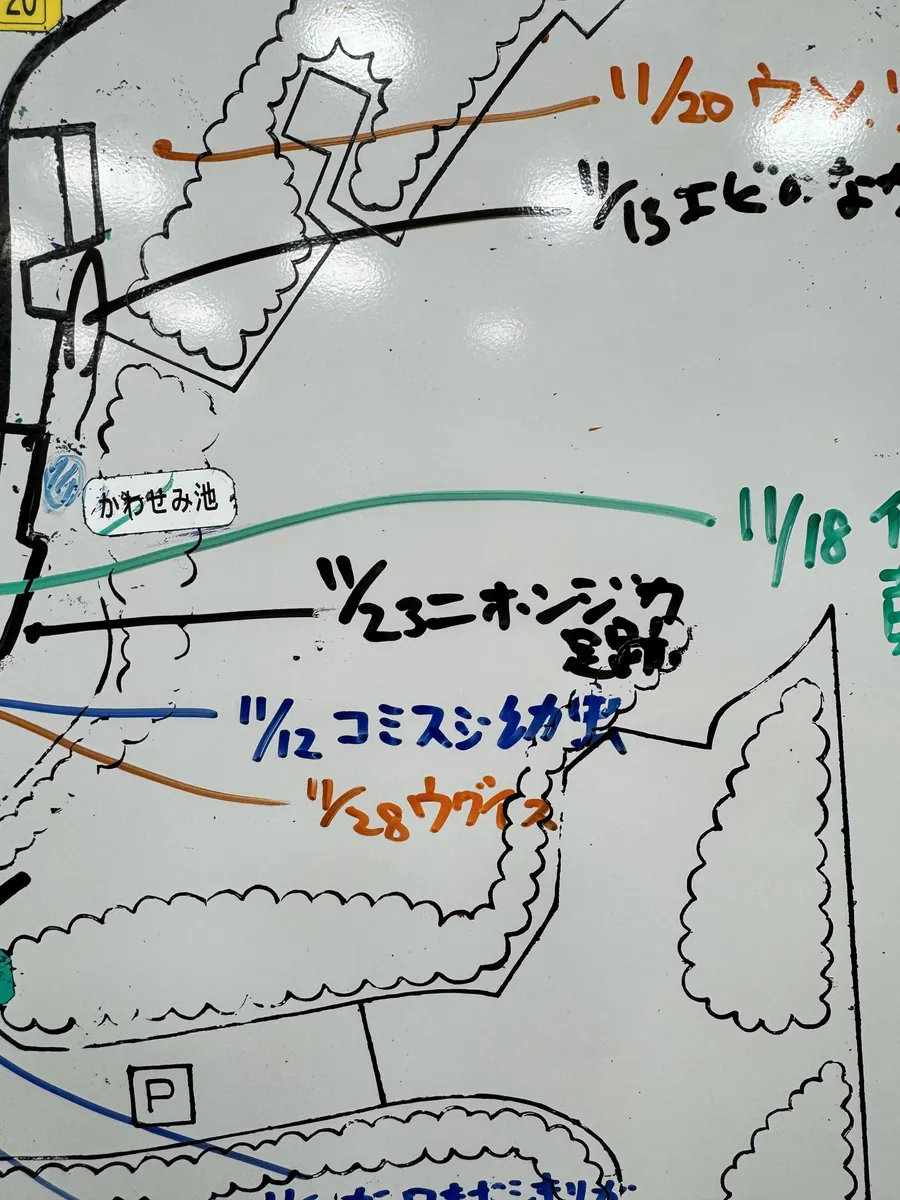 20
11/20 ウソ
11/13 エビの
かわせみ池
11/18
11/23 ニホンジカ
足跡
11/12 コミスジ幼虫
11/28 ウグイス
P